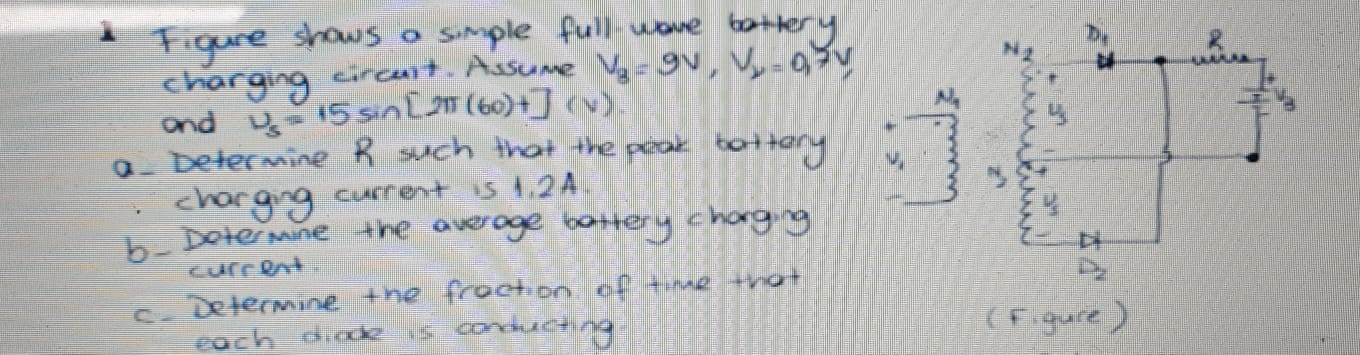 1 Figure shows a simple full-wave battery
charging circuit. Assume V_B = 9V, V_γ = 0,7V,
and υ_s = 15 sin[2π(60)t] (v).
a- Determine R such that the peak battery
charging current is 1.2A.
b- Determine the average battery charging
current.
c- Determine the fraction of time that
each diode is conducting.
N₁
+
v₁
-
N₂
+
υ_s
-
N₂
+
υ_s
-
D₁
R
+
V_B
-
D₂
(Figure)